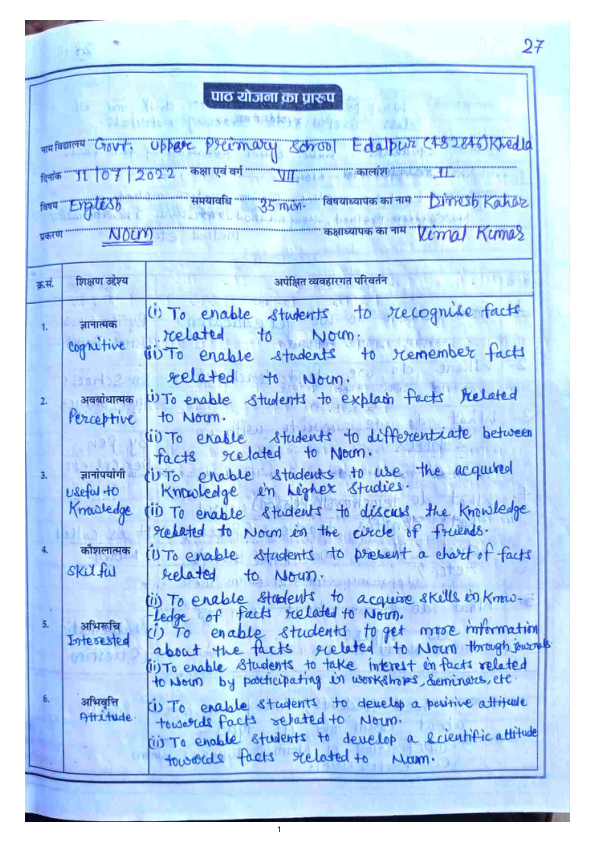 27
पाठ योजना का प्रारूप
नाम विद्यालय Govt. Upper Primary School Edalpur (482846) Khedla
दिनांक 11/07/2022 कक्षा एवं वर्ग VII कालांश II
विषय English समयावधि 35 min. विषयाध्यापक का नाम Dinesh Kahar
प्रकरण Noun कक्षाध्यापक का नाम Vimal Kumar
क्र.सं. शिक्षण उद्देश्य अपेक्षित व्यवहारगत परिवर्तन
1. ज्ञानात्मक Cognitive (i) To enable students to recognise facts
related to Noun.
(ii) To enable students to remember facts
related to Noun.
2. अवबोधात्मक Perceptive (i) To enable students to explain facts related
to Noun.
(ii) To enable students to differentiate between
facts related to Noun.
3. ज्ञानोपयोगी useful to Knowledge (i) To enable students to use the acquired
Knowledge in higher studies.
(ii) To enable students to discuss the Knowledge
related to Noun in the circle of friends.
4. कौशलात्मक Skilful (i) To enable students to present a chart of facts
related to Noun.
(ii) To enable students to acquire skills in Know-
ledge of facts related to Noun.
5. अभिरूचि Interested (i) To enable students to get more information
about the facts related to Noun through journals
(ii) To enable students to take interest in facts related
to Noun by participating in workshops, Seminars, etc.
6. अभिवृत्ति Attitude (i) To enable students to develop a positive attitude
towards facts related to Noun.
(ii) To enable students to develop a scientific attitude
towards facts related to Noun.
1